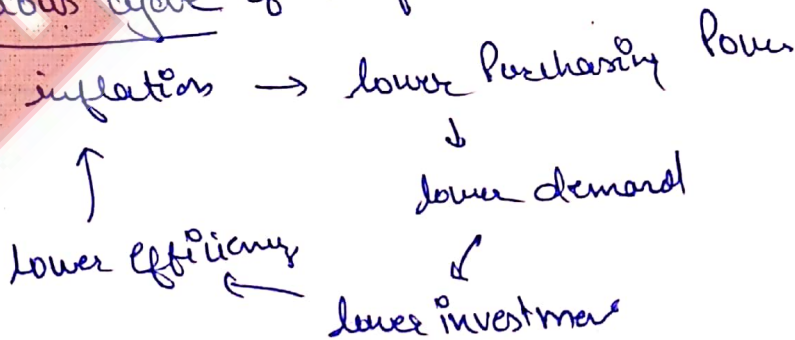 cycle of
inflation → lower Purchasing Power
↓
lower demand
↓
lower investmen
←
Lower efficiency
↑